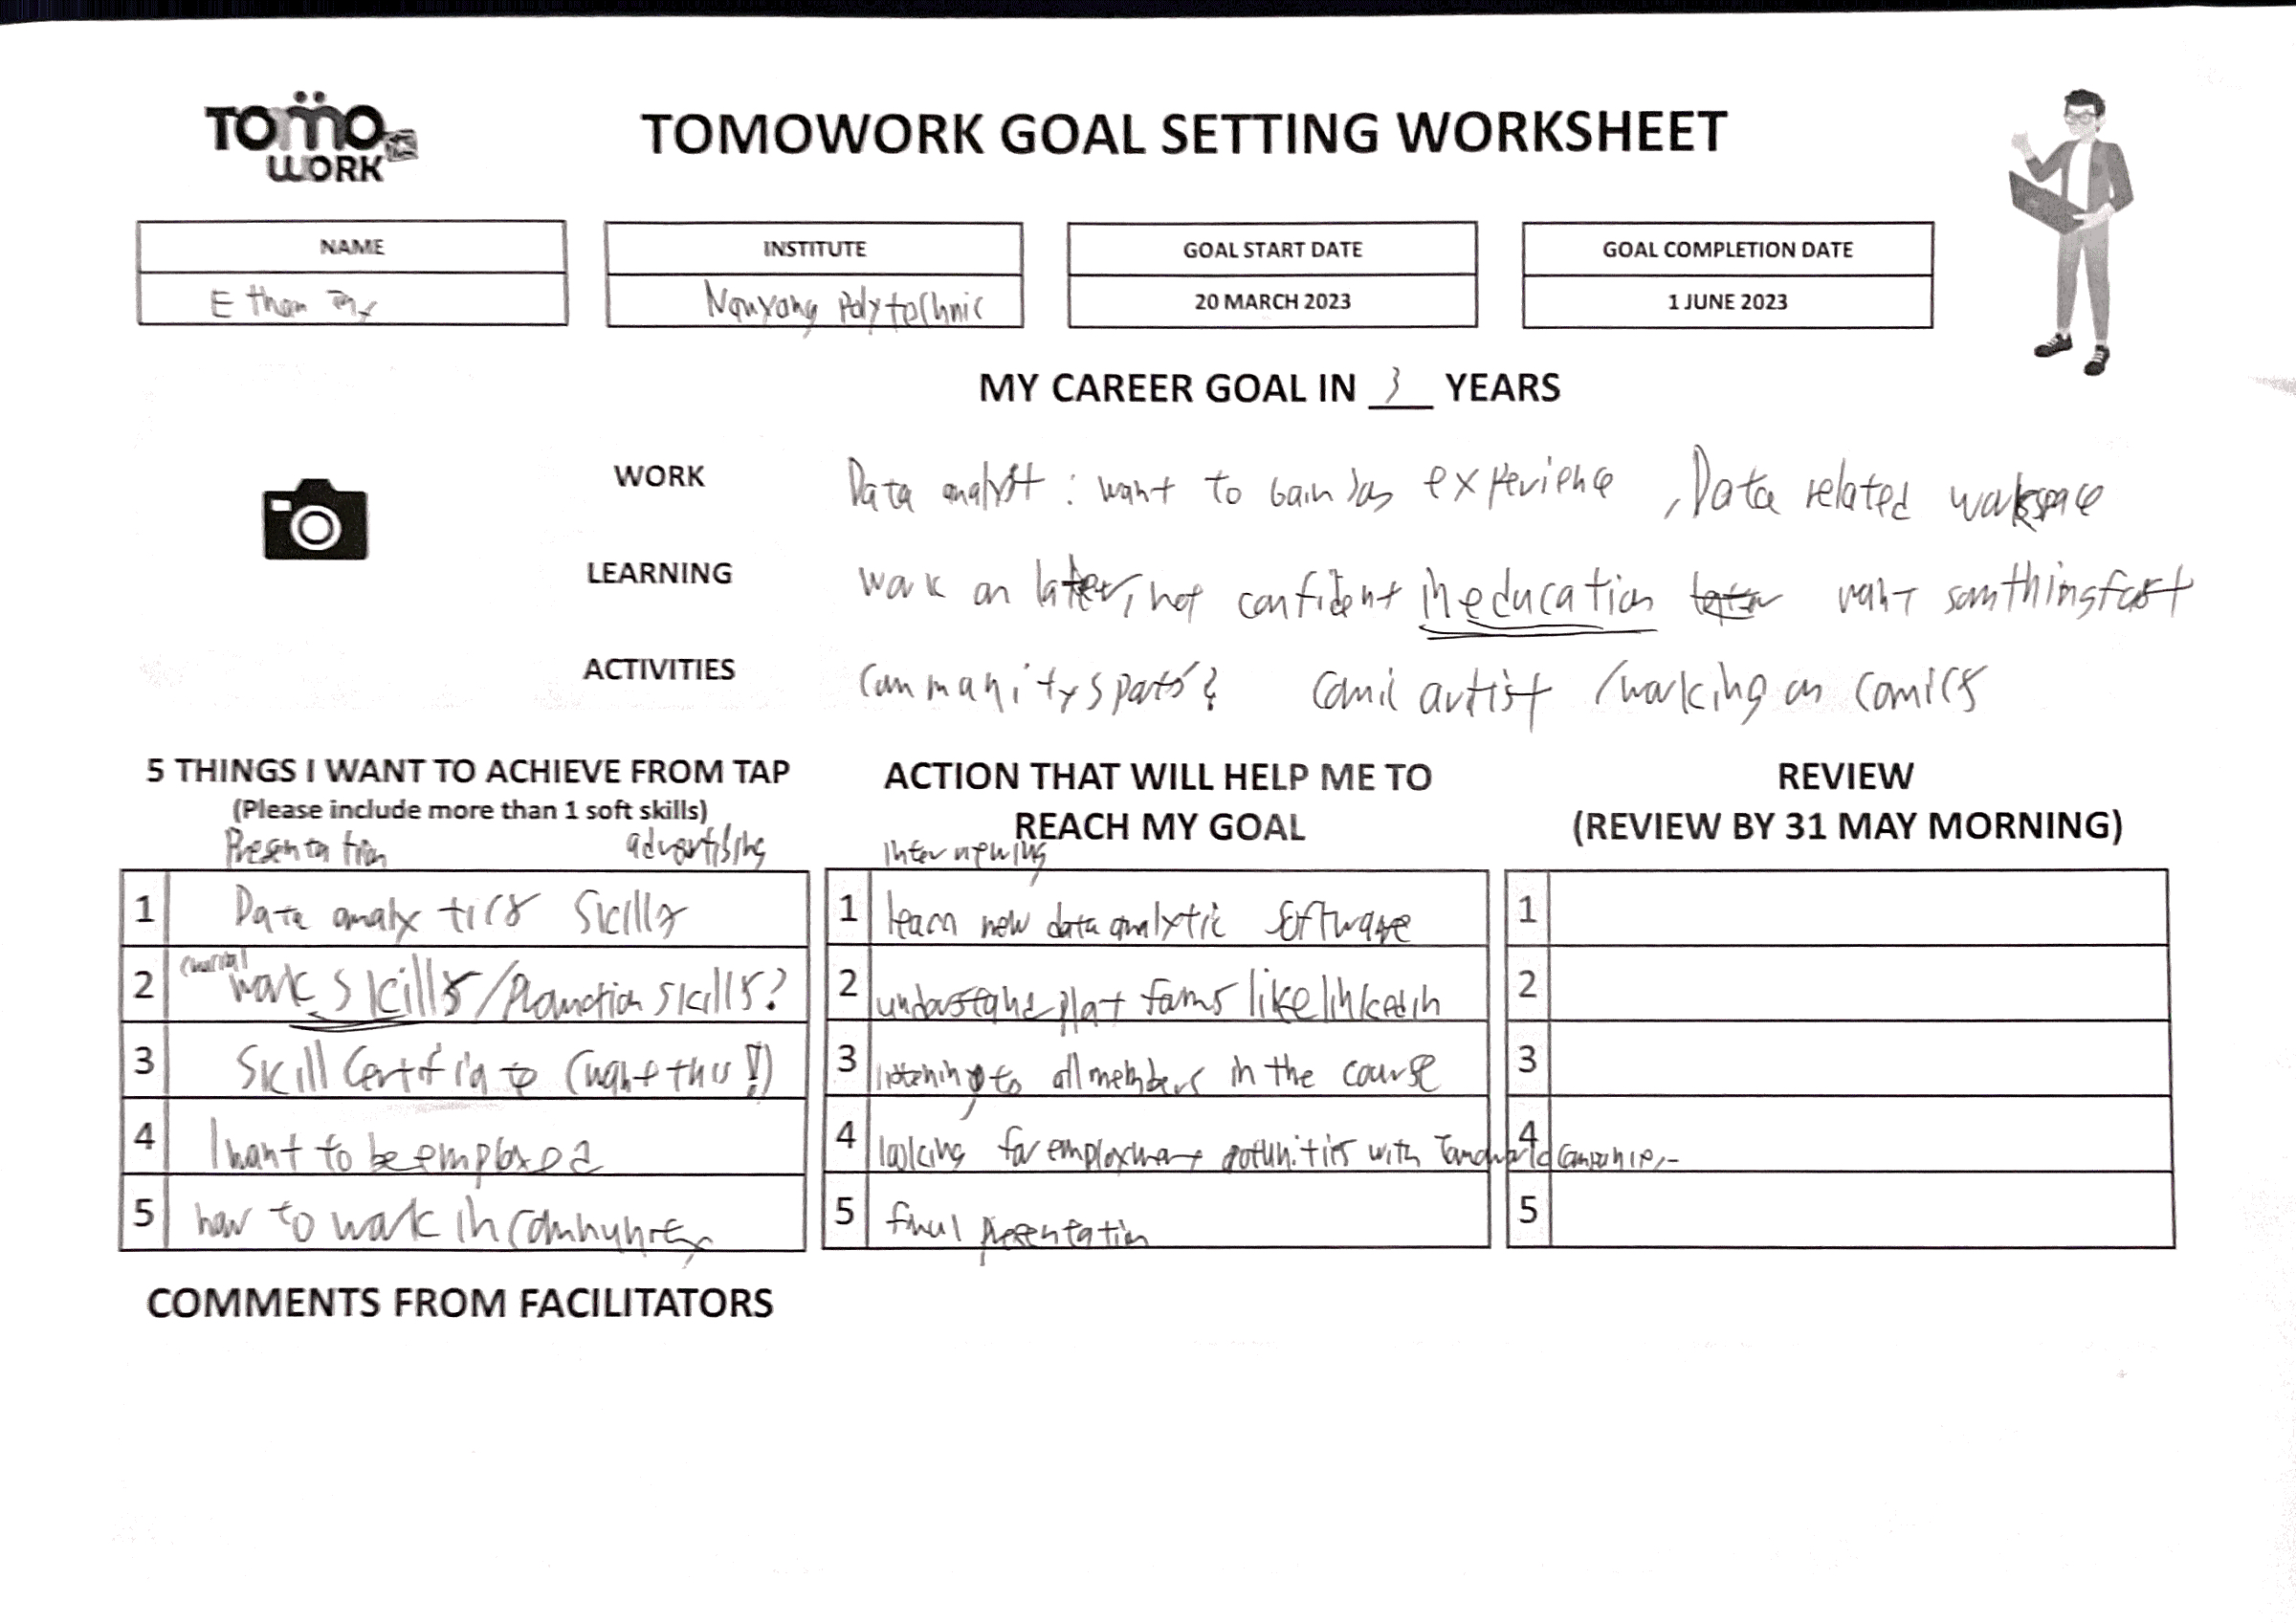 TOMO WORK
TOMOWORK GOAL SETTING WORKSHEET
NAME
INSTITUTE
GOAL START DATE
GOAL COMPLETION DATE
Ethan
Nanyang Polytechnic
20 MARCH 2023
1 JUNE 2023
MY CAREER GOAL IN 3 YEARS
WORK
Data analyst : want to gain experience , Data related workspace
LEARNING
work on later, not confident in education want somthing fast
ACTIVITIES
Communitysports? comic artist / working on comics
5 THINGS I WANT TO ACHIEVE FROM TAP
(Please include more than 1 soft skills)
Presentation advertising
1 Data analytics skills
2 work skills/Promotion skills?
3 Skill Certificate (want this!!)
4 I want to be employed
5 how to work in community
ACTION THAT WILL HELP ME TO
REACH MY GOAL
interviewing
1 learn new data analytic software
2 understand platforms like linkedin
3 listening to all members in the course
4 looking for employment with companies
5 final presentation
REVIEW
(REVIEW BY 31 MAY MORNING)
1
2
3
4
5
COMMENTS FROM FACILITATORS